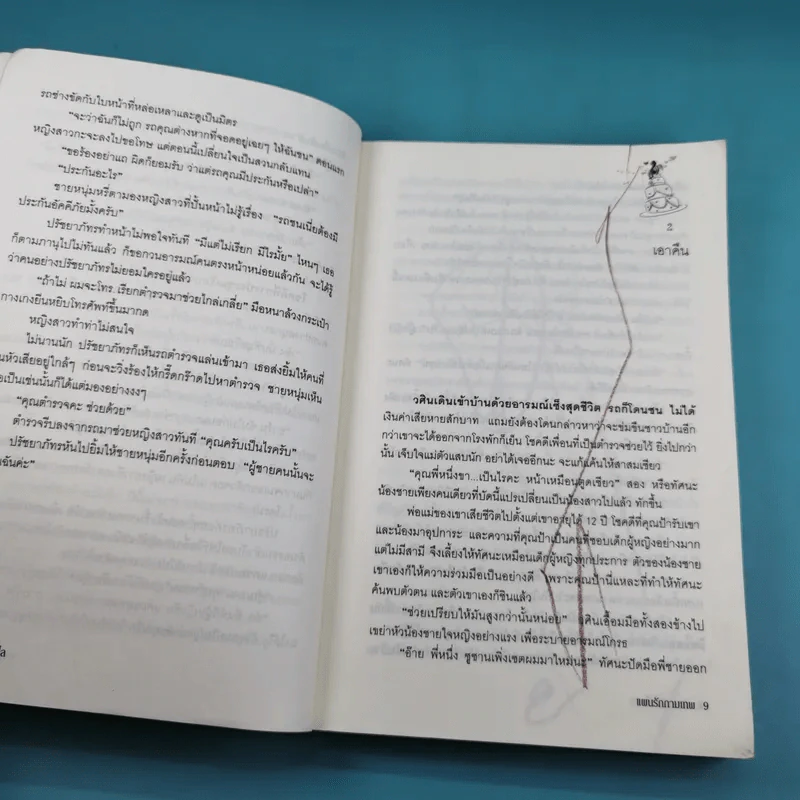 รถช่างขัดกับใบหน้าที่หล่อเหลาและดูเป็นมิตร
“จะว่าฉันก็ไม่ถูก รถคุณต่างหากที่จอดอยู่เฉยๆ ให้ฉันชน” ตอนแรก
หญิงสาวกะจะลงไปขอโทษ แต่ตอนนี้เปลี่ยนใจเป็นสวนกลับแทน
“ขอร้องอย่าแถ ผิดก็ยอมรับ ว่าแต่รถคุณมีประกันหรือเปล่า”
“ประกันอะไร”
ชายหนุ่มหรี่ตามองหญิงสาวที่ปั้นหน้าไม่รู้เรื่อง “รถชนเนี่ยต้องมี
ประกันอัคคีภัยมั้งครับ”
ปรัชยาภัทรทำหน้าไม่พอใจทันที “มีแต่ไม่เรียก มีไรมั้ย” ไหนๆ เธอ
ก็ตามภานุไปไม่ทันแล้ว ก็ขอกวนอารมณ์คนตรงหน้าหน่อยแล้วกัน จะได้รู้
ว่าคนอย่างปรัชยาภัทรไม่ยอมใครอยู่แล้ว
“ถ้าไม่ ผมจะโทร.เรียกตำรวจมาช่วยไกล่เกลี่ย” มือหนาล้วงกระเป๋า
กางเกงยีนหยิบโทรศัพท์ขึ้นมากด
หญิงสาวทำท่าไม่สนใจ
ไม่นานนัก ปรัชยาภัทรก็เห็นรถตำรวจแล่นเข้ามา เธอส่งยิ้มให้คนที่
นหัวเสียอยู่ใกล้ๆ ก่อนจะวิ่งร้องไห้กรี๊ดกร๊าดไปหาตำรวจ ชายหนุ่มเห็น
อเป็นเช่นนั้นก็ได้แต่มองอย่างงงๆ
“คุณตำรวจคะ ช่วยด้วย”
ตำรวจรีบลงจากรถมาช่วยหญิงสาวทันที “คุณครับเป็นไรครับ”
ปรัชยาภัทรหันไปยิ้มให้ชายหนุ่มอีกครั้งก่อนตอบ “ผู้ชายคนนั้นจะ
นฉันค่ะ”
2
เอาคืน
วศินเดินเข้าบ้านด้วยอารมณ์เซ็งสุดชีวิต รถก็โดนชน ไม่ได้
เงินค่าเสียหายสักบาท แถมยังต้องโดนกล่าวหาว่าจะข่มขืนชาวบ้านอีก
กว่าเขาจะได้ออกจากโรงพักก็เย็น โชคดีที่เพื่อนที่เป็นตำรวจช่วยไว้ ยิ่งไปกว่า
นั้น เจ็บใจแม่ตัวแสบนัก อย่าได้เจออีกนะ จะแก้แค้นให้สาสมเชียว
“คุณพี่หนึ่งขา...เป็นไรคะ หน้าเหมือนตูดเชียว” สอง หรือทัศนะ
น้องชายเพียงคนเดียวที่บัดนี้แปรเปลี่ยนเป็นน้องสาวไปแล้ว ทักขึ้น
พ่อแม่ของเขาเสียชีวิตไปตั้งแต่เขาอายุได้ 12 ปี โชคดีที่คุณป้ารับเขา
และน้องมาอุปการะ และความที่คุณป้าเป็นคนที่ชอบเด็กผู้หญิงอย่างมาก
แต่ไม่มีสามี จึงเลี้ยงให้ทัศนะเหมือนเด็กผู้หญิงทุกประการ ตัวของน้องชาย
เขาเองก็ให้ความร่วมมือเป็นอย่างดี เพราะคุณป้านี่แหละที่ทำให้ทัศนะ
ค้นพบตัวตน และตัวเขาเองก็ชินแล้ว
“ช่วยเปรียบให้มันสูงกว่านั้นหน่อย” วศินเอื้อมมือทั้งสองข้างไป
เขย่าหัวน้องชายใจหญิงอย่างแรง เพื่อระบายอารมณ์โกรธ
“อ๊าย พี่หนึ่ง ซูซานเพิ่งเซตผมมาใหม่นะ” ทัศนะปัดมือพี่ชายออก
แผนรักกามเทพ 9